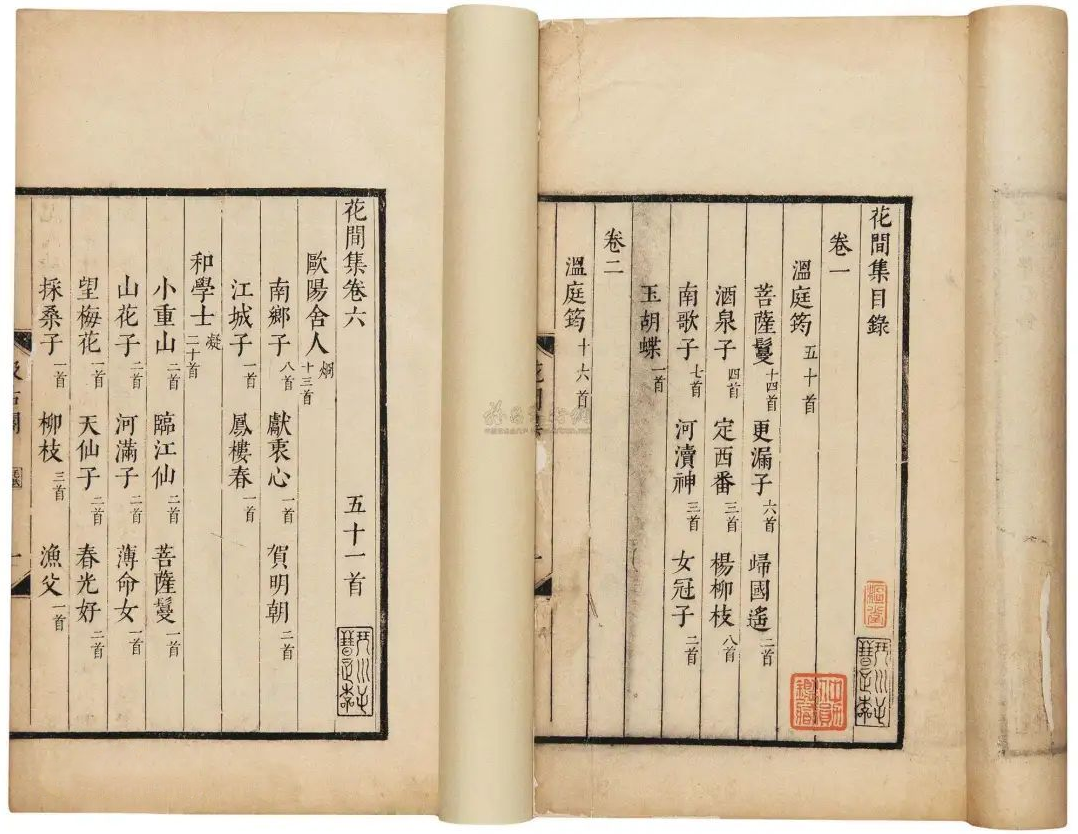 花間集目錄
卷一
溫庭筠 五十首
菩薩鬘 十四首 更漏子 六首 歸國遙 二首
酒泉子 四首 定西番 三首 楊柳枝 八首
南歌子 七首 河瀆神 三首 女冠子 二首
玉胡蝶 一首
卷二
溫庭筠 十六首
花間集卷六 五十一首
歐陽舍人 烱 十三首
南鄉子 八首 獻衷心 一首 賀明朝 二首
江城子 一首 鳳樓春 一首
和學士 凝 二十首
小重山 二首 臨江仙 二首 菩薩鬘 一首
山花子 二首 河滿子 二首 薄命女 一首
望梅花 一首 天仙子 二首 春光好 二首
採桑子 一首 柳枝 三首 漁父 一首